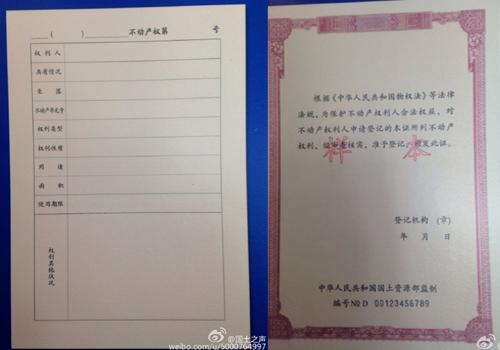 ( ) 不动产权第 号
权利人
共有情况
坐落
不动产单元号
权利类型
权利性质
用途
面积
使用期限
权利其他状况
根据《中华人民共和国物权法》等法律
法规,为保护不动产权利人合法权益,对
不动产权利人申请登记的本证所列不动产
权利,经审查核实,准予登记,颁发此证。
样本
登记机构 (章)
年 月 日
中华人民共和国国土资源部监制
编号 №D 00123456789
@国土之声
weibo.com/u/5000764997